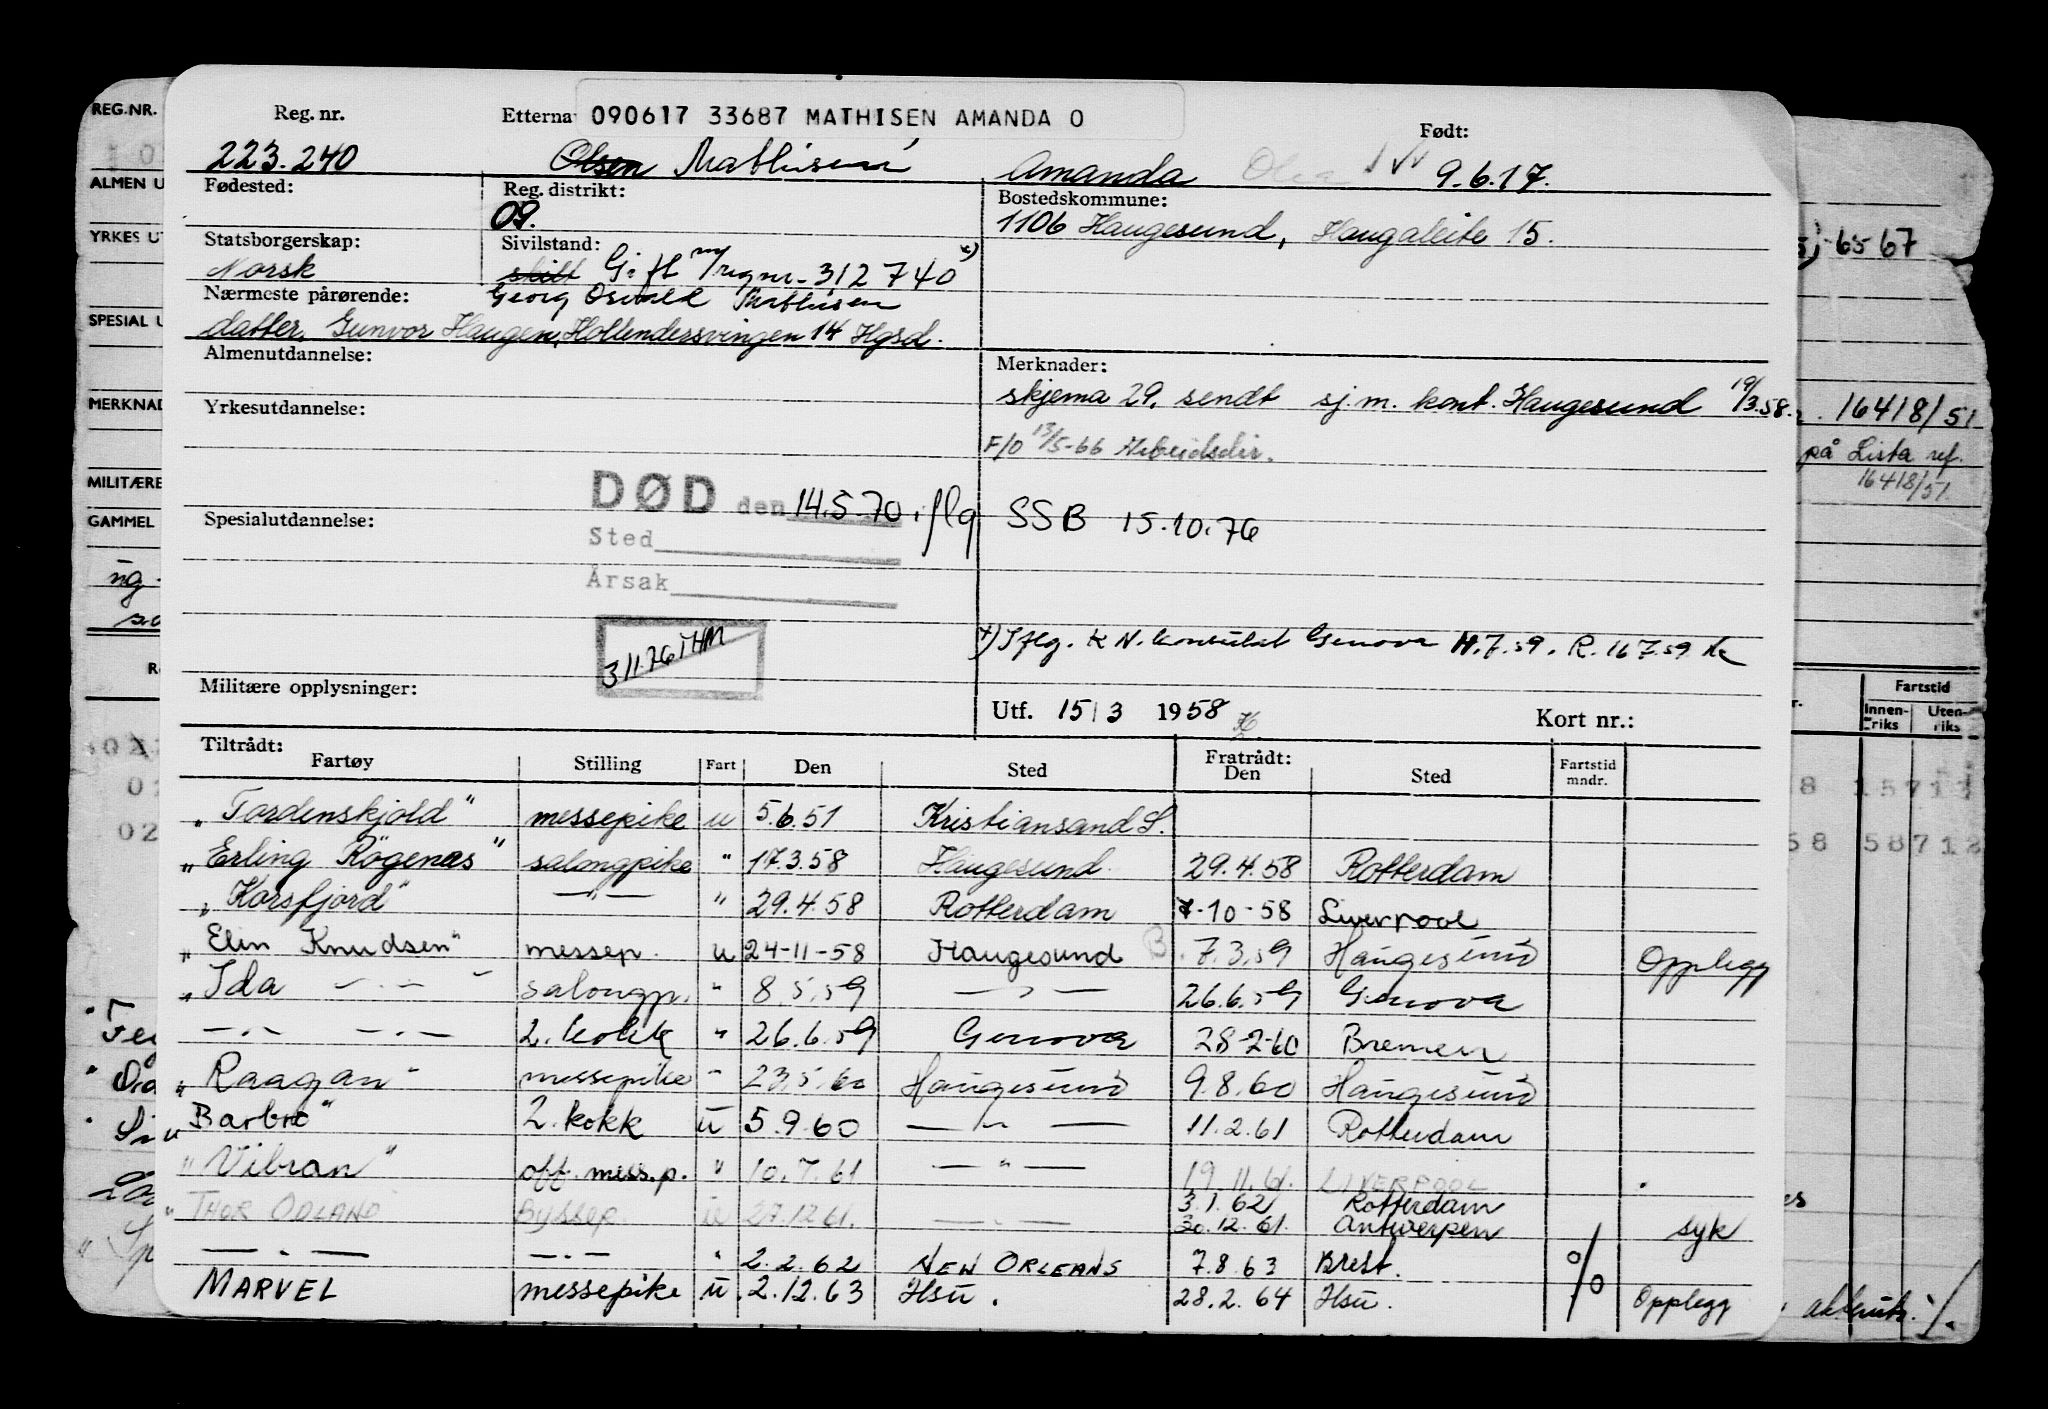 REG.NR.
ALMEN U
YRKES UT
SPESIAL U
MERKNAD
MILITÆRE
GAMMEL
Reg. nr. Etterna 090617 33687 MATHISEN AMANDA O Født:
223.240 Olsen Mathisen Amanda 9.6.17.
Fødested: Reg. distrikt: Bostedskommune:
09. 1106 Haugesund, Haugaleite 15.
Statsborgerskap: Sivilstand:
Norsk skilt Gift m/reg nr. 312740 x)
Nærmeste pårørende: Georg Osvald Mathisen
datter, Gunvor Haugen, Hollendersvingen 14 Hgsd.
Almenutdannelse: Merknader:
skjema 29. sendt sj.m. kont. Haugesund 19/3.58.
Yrkesutdannelse:
F/O 13/5-66 Arbeidsdir.
DØD den 14.5.70. iflg SSB 15.10.76
Spesialutdannelse:
Sted
Årsak
x) Iflg. K N. konsulat Genova 14.7.59. R. 16 7.59
3 11.76 THM
Militære opplysninger:
Utf. 15/3 1958 Kort nr.:
Tiltrådt: Fratrådt:
Fartøy Stilling Fart Den Sted Den Sted Fartstid mndr.
"Tordenskjold" messepike u 5.6.51 Kristiansand S.
"Erling Røgenæs" salongpike " 17.3.58 Haugesund 29.4.58 Rotterdam
"Korsfjord" —"— " 29.4.58 Rotterdam 7-10-58 Liverpool
"Elin Knudsen" messep. u 24-11-58 Haugesund B. 7.3.59 Haugesund Opplegg
"Ida —.—" salongp. " 8.5.59 —"— 26.6.59 Genova
—.— —.— 2. kokk " 26.6.59 Genova 28-2-60 Bremen
"Raagan" messepike " 23.5.60 Haugesund 9.8.60 Haugesund
"Barbro" 2. kokk u 5.9.60 —"— 11.2.61 Rotterdam
"Vibran" off. mess.p. " 10.7.61 —"— 19.11.61. LIVERPOOL
3.1.62 Rotterdam
"THOR ODLAND Byssep. u 27.12.61. —.— 30.12.61. Antwerpen syk
—.— —.— " 2.2.62 NEW ORLEANS 7.8.63 Brest.
MARVEL messepike u. 2.12.63 Hsu. 28.2.64 Hsu. % Opplegg
-65 67
16418/51
på Lista ref.
16418/51
Fartstid
Innenriks Utenriks
8 15712
58 58712